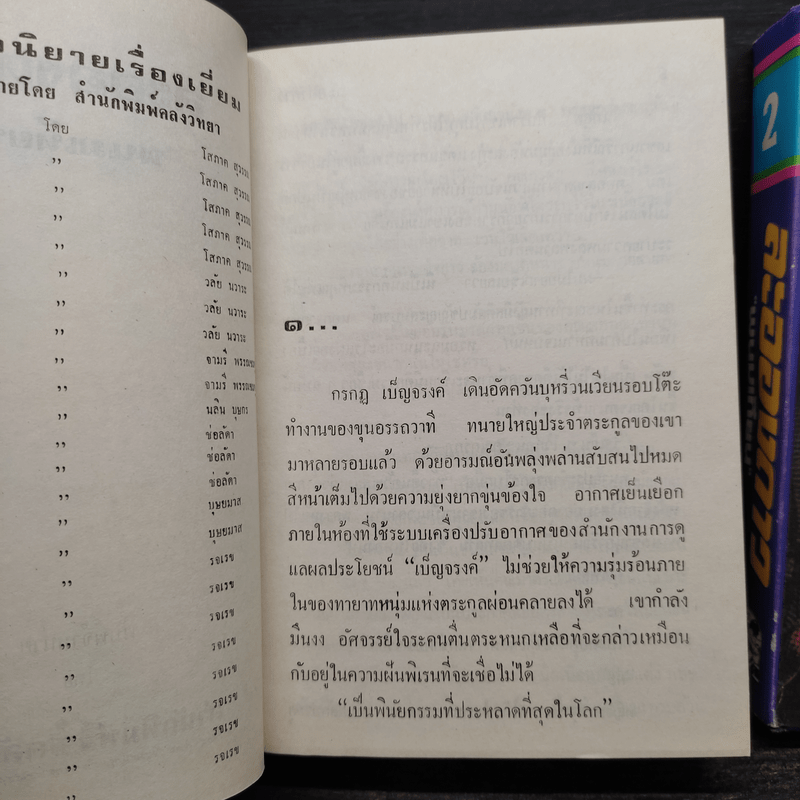 นิยายเรื่องเยี่ยม
ยโดย สำนักพิมพ์คลังวิทยา
โดย
” โสภาค สุวรรณ
” โสภาค สุวรรณ
” โสภาค สุวรรณ
” โสภาค สุวรรณ
” วลัย นวาระ
” วลัย นวาระ
” วลัย นวาระ
” จามรี พรรณชม
” จามรี พรรณชม
” นลิน บุษกร
” ช่อลัดา
” ช่อลัดา
” ช่อลัดา
” บุษยมาส
” บุษยมาส
” รจเรข
” รจเรข
” รจเรข
” รจเรข
” รจเรข
” รจเรข
” รจเรข
” รจเรข
”
๑...
กรกฎ เบ็ญจรงค์ เดินอัดควันบุหรี่วนเวียนรอบโต๊ะ
ทำงานของขุนอรรถวาที ทนายใหญ่ประจำตระกูลของเขา
มาหลายรอบแล้ว ด้วยอารมณ์อันพลุ่งพล่านสับสนไปหมด
สีหน้าเต็มไปด้วยความยุ่งยากขุ่นข้องใจ อากาศเย็นเยือก
ภายในห้องที่ใช้ระบบเครื่องปรับอากาศของสำนักงานการดู
แลผลประโยชน์ “เบ็ญจรงค์” ไม่ช่วยให้ความรุ่มร้อนภาย
ในของทายาทหนุ่มแห่งตระกูลผ่อนคลายลงได้ เขากำลัง
มึนงง อัศจรรย์ใจระคนตื่นตระหนกเหลือที่จะกล่าวเหมือน
กับอยู่ในความฝันพิเรนที่จะเชื่อไม่ได้
“เป็นพินัยกรรมที่ประหลาดที่สุดในโลก”
2
ละอองดาว